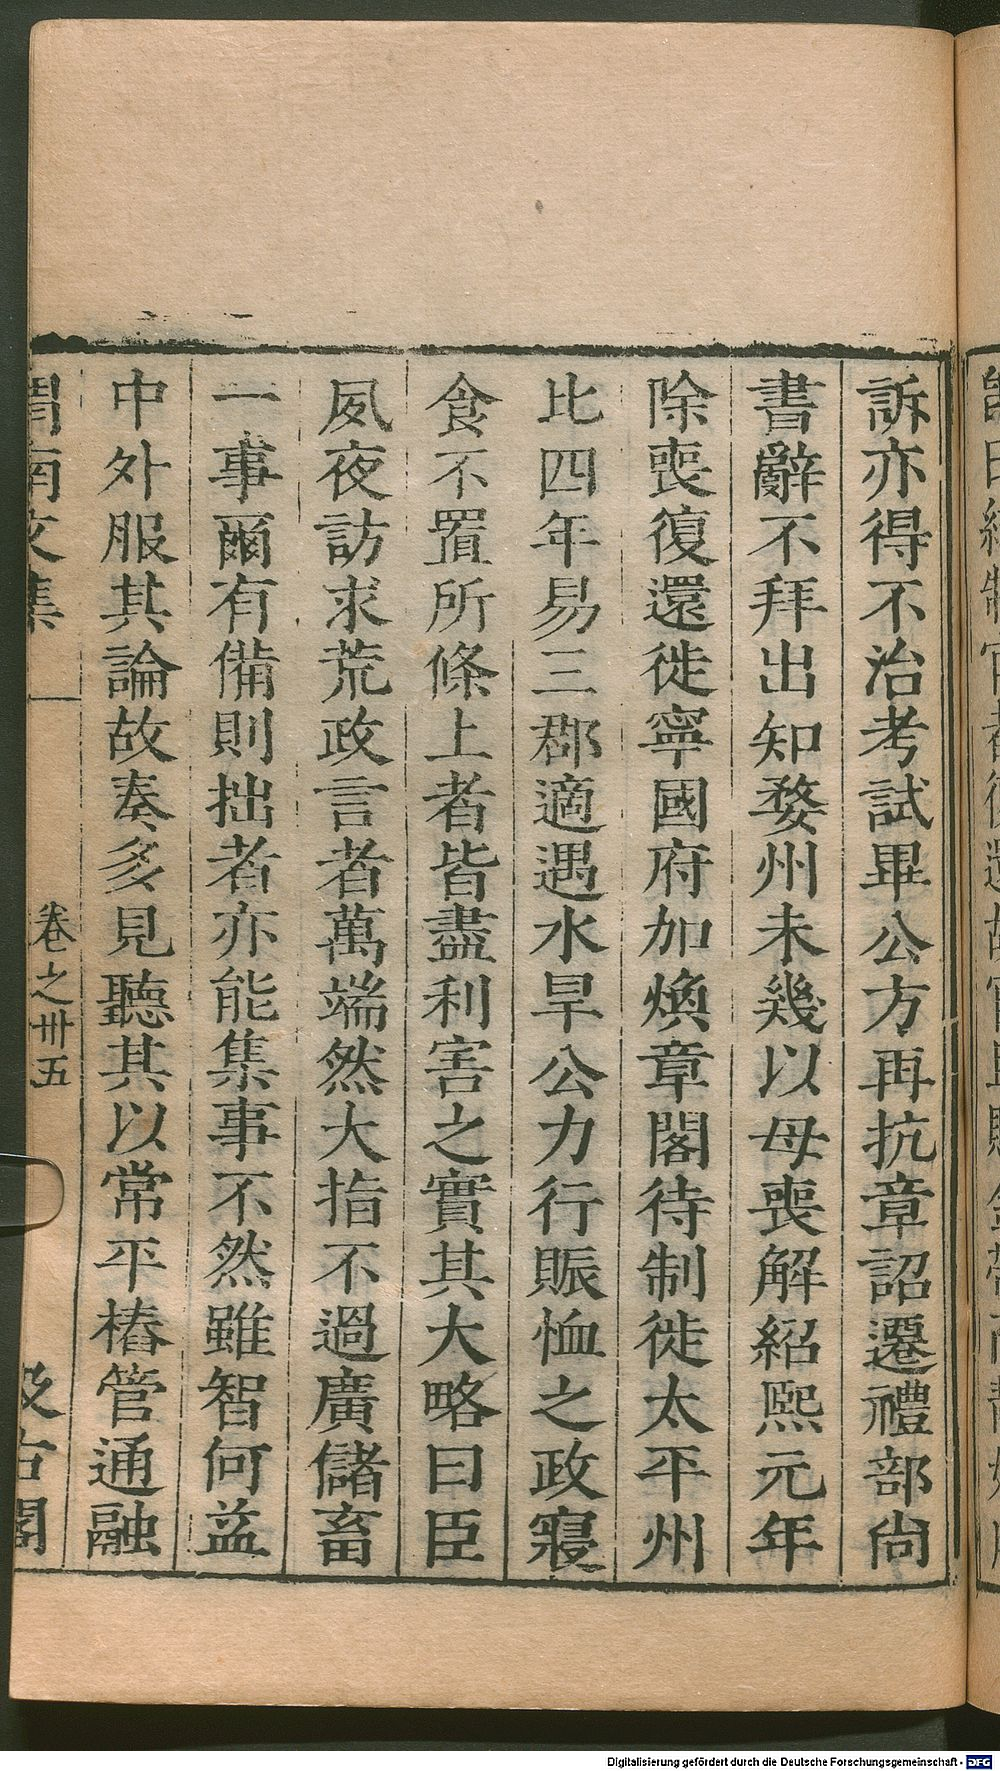 訴亦得不治考試畢公方再抗章詔遷禮部尚
書辭不拜出知婺州未幾以母喪解紹熙元年
除喪復還徙寧國府加煥章閣待制徙太平州
比四年易三郡適遇水旱公力行賑恤之政寢
食不置所條上者皆盡利害之實其大略曰臣
夙夜訪求荒政言者萬端然大指不過廣儲畜
一事爾有備則拙者亦能集事不然雖智何益
中外服其論故奏多見聽其以常平樁管通融
渭南文集 卷之卅五 汲古閣
Digitalisierung gefördert durch die Deutsche Forschungsgemeinschaft - DFG